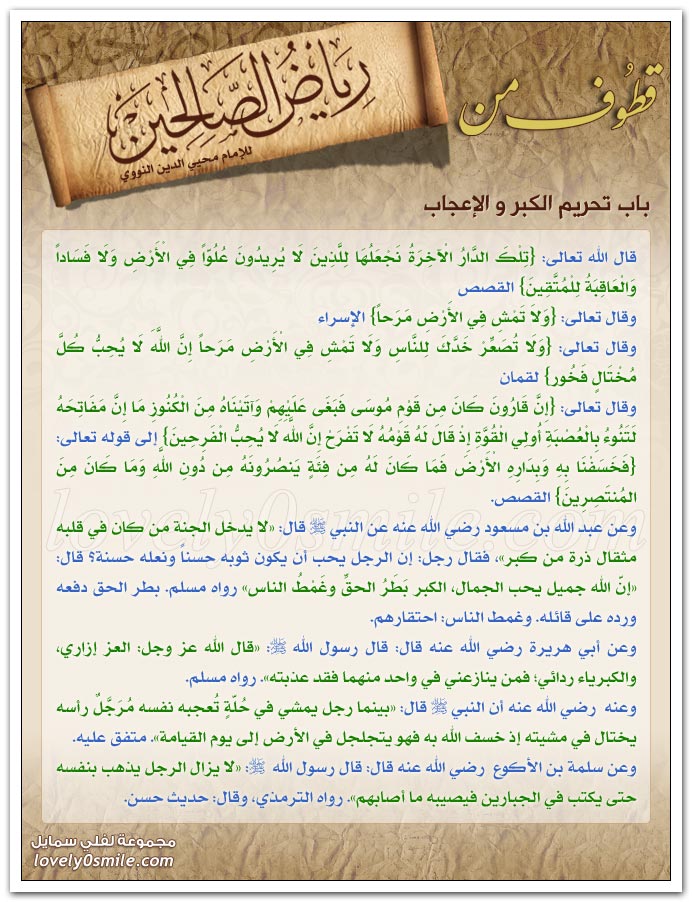 قطوف من
رياض الصالحين
للإمام محيي الدين النووي
باب تحريم الكبر و الإعجاب
قال الله تعالى: {تِلْكَ الدَّارُ الْآخِرَةُ نَجْعَلُهَا لِلَّذِينَ لَا يُرِيدُونَ عُلُوّاً فِي الْأَرْضِ وَلَا فَسَاداً
وَالْعَاقِبَةُ لِلْمُتَّقِينَ} القصص
وقال تعالى: {وَلاَ تَمْشِ فِي الأَرْضِ مَرَحاً} الإسراء
وقال تعالى: {وَلَا تُصَعِّرْ خَدَّكَ لِلنَّاسِ وَلَا تَمْشِ فِي الْأَرْضِ مَرَحاً إِنَّ اللَّهَ لَا يُحِبُّ كُلَّ
مُخْتَالٍ فَخُور} لقمان
وقال تعالى: {إِنَّ قَارُونَ كَانَ مِن قَوْمِ مُوسَى فَبَغَى عَلَيْهِمْ وَآتَيْنَاهُ مِنَ الْكُنُوزِ مَا إِنَّ مَفَاتِحَهُ
لَتَنُوءُ بِالْعُصْبَةِ أُولِي الْقُوَّةِ إِذْ قَالَ لَهُ قَوْمُهُ لَا تَفْرَحْ إِنَّ اللَّهَ لَا يُحِبُّ الْفَرِحِينَ} إلى قوله تعالى:
{فَخَسَفْنَا بِهِ وَبِدَارِهِ الْأَرْضَ فَمَا كَانَ لَهُ مِن فِئَةٍ يَنصُرُونَهُ مِن دُونِ اللَّهِ وَمَا كَانَ مِنَ
المُنتَصِرِينَ} القصص.
وعن عبد الله بن مسعود رضي الله عنه عن النبي ﷺ قال: «لا يدخل الجنة من كان في قلبه
مثقال ذرة من كبر»، فقال رجل: إن الرجل يحب أن يكون ثوبه حسناً ونعله حسنة؟ قال:
«إنّ الله جميل يحب الجمال، الكبر بَطَرُ الحقِّ وغَمْطُ الناس» رواه مسلم. بطر الحق دفعه
ورده على قائله. وغمط الناس: احتقارهم.
وعن أبي هريرة رضي الله عنه قال: قال رسول الله ﷺ: «قال الله عز وجل: العز إزاري،
والكبرياء ردائي؛ فمن ينازعني في واحد منهما فقد عذبته». رواه مسلم.
وعنه رضي الله عنه أن النبي ﷺ قال: «بينما رجل يمشي في حُلّةٍ تُعجبه نفسه مُرَجَّلٌ رأسه
يختال في مشيته إذ خسف الله به فهو يتجلجل في الأرض إلى يوم القيامة». متفق عليه.
وعن سلمة بن الأكوع رضي الله عنه قال: قال رسول الله ﷺ: «لا يزال الرجل يذهب بنفسه
حتى يكتب في الجبارين فيصيبه ما أصابهم». رواه الترمذي، وقال: حديث حسن.
lovely0smile.com
مجموعة لفلي سمايل
lovely0smile.com